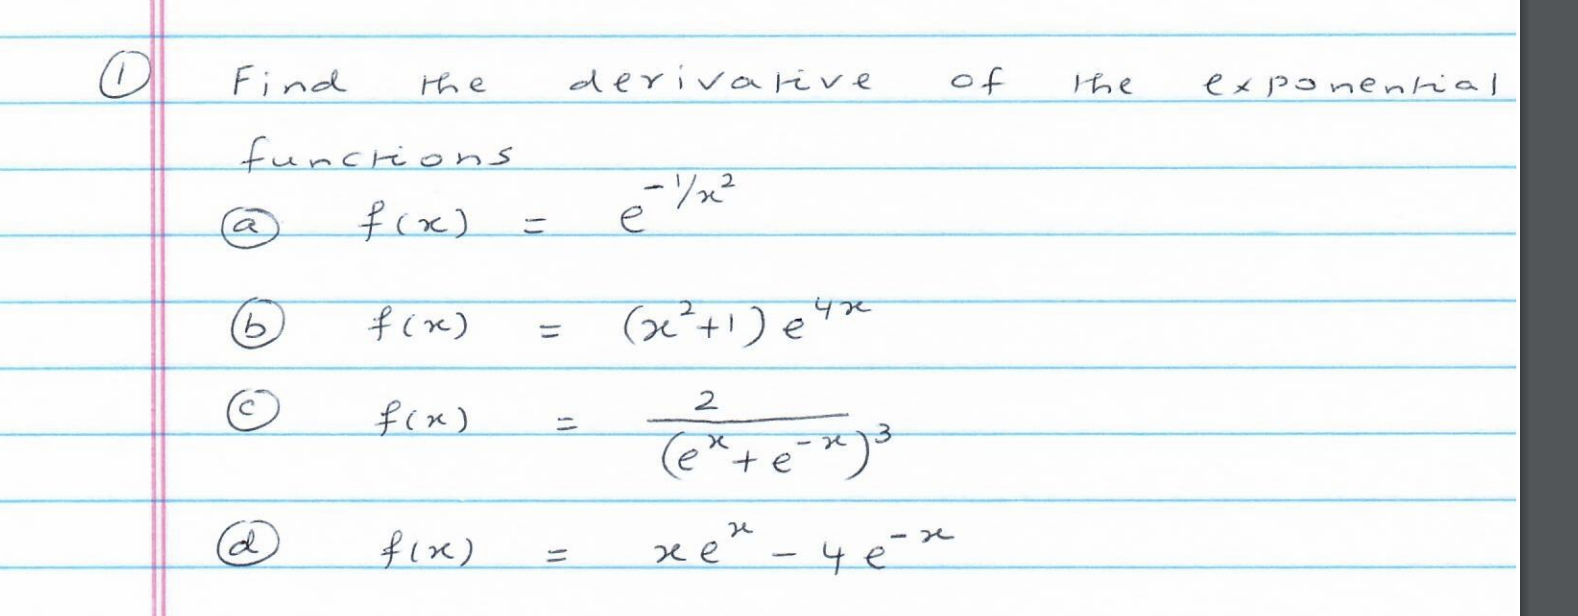 ① Find the derivative of the exponential
functions
ⓐ f(x) = e^{-1/x^2}
ⓑ f(x) = (x^2+1) e^{4x}
ⓒ f(x) = \frac{2}{(e^x + e^{-x})^3}
ⓓ f(x) = x e^x - 4 e^{-x}